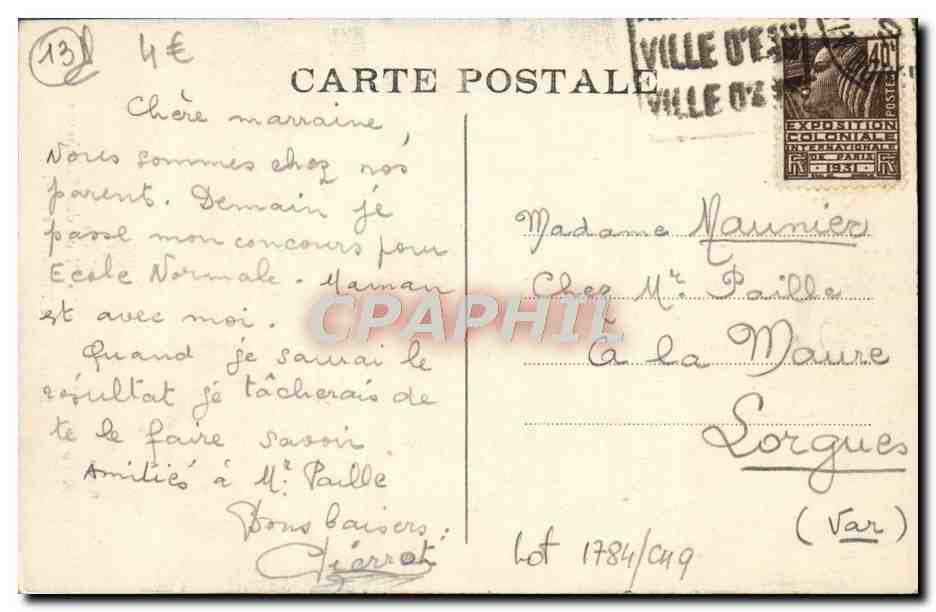 13
4€
CARTE POSTALE
VILLE D'E
VILLE D'
40c
POSTES
EXPOSITION
COLONIALE
INTERNATIONALE
DE PARIS
1931
Chère marraine,
Nous sommes chez nos
parent. Demain je
passe mon concours pour
Ecole Normale. Maman
est avec moi.
Quand je saurai le
résultat je tâcherais de
te le faire savoir
Amitiés à Mr. Paille
Bons baisers.
Pierrot
Madame Maunier
Chez Mr. Paille
à la Maure
Lorgues
(Var)
Lot 1784/C49
CPAPHIL